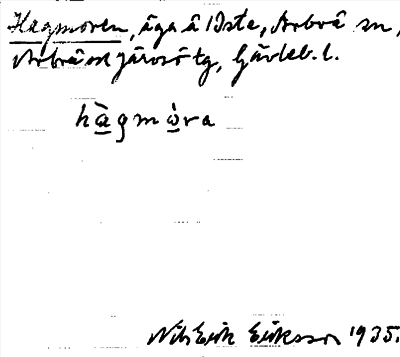 Hagmoren, äga å 1 Iste, Arbrå sn,
Arbrå ock Järvsö tg, Gävleb. l.
hàgmòra
Nils Erik Eriksson 1935.